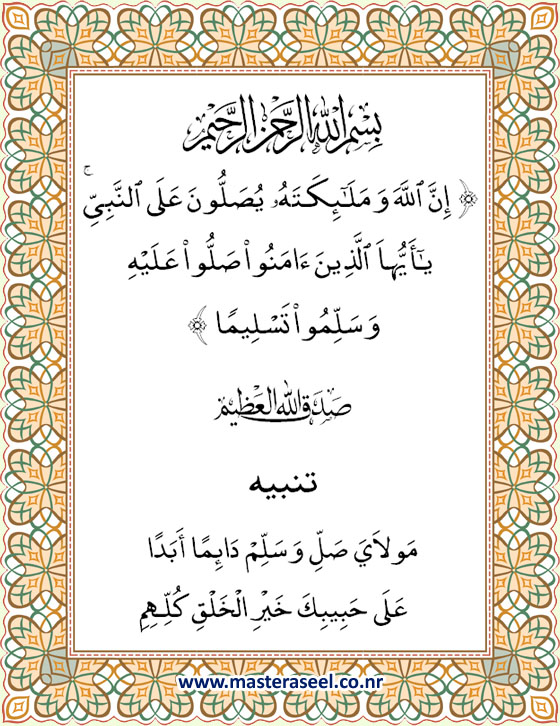 بِسْمِ اللهِ الرَّحْمٰنِ الرَّحِيْمِ
﴿ إِنَّ ٱللَّهَ وَ مَلَـٰٓئِكَتَهُۥ يُصَلُّونَ عَلَى ٱلنَّبِىِّ ۚ
يَـٰٓأَيُّهاَ ٱلَّذِينَ ءَامَنُوا۟ صَلُّوا۟ عَلَيْهِ
وَ سَلِّمُوا۟ تَسْلِيمًا ﴾
صَدَقَ اللهُ العَظِيْم
تنبيه
مَولاَيَ صَلِّ وَ سَلِّمْ دَائِمًا أَبَدًا
عَلَى حَبِيبِكَ خَيْرِ الْخَلْقِ كُلِّـهِمِ
www.masteraseel.co.nr